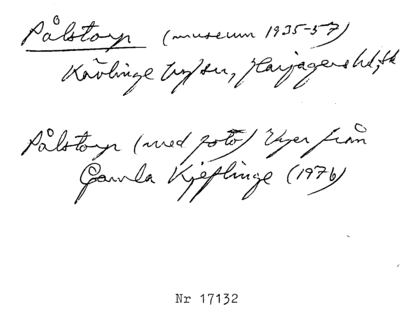 Pålstorp (museum 1935-57)
Kävlinge hg/sn, Harjagers hd, Sk
Pålstorp (med foto) Vyer från
Gamla Kjeflinge (1976)
Nr 17132